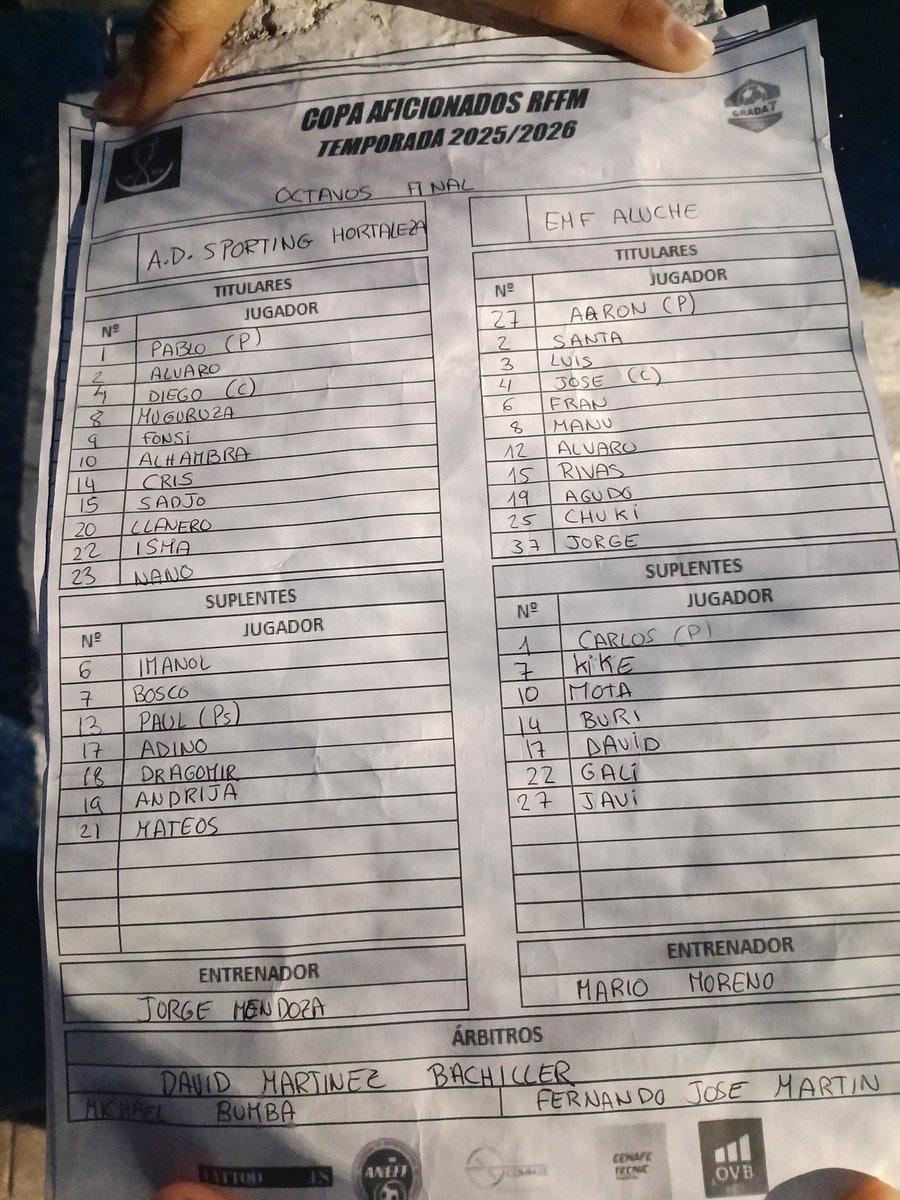 COPA AFICIONADOS RFFM
TEMPORADA 2025/2026
GRADA7
OCTAVOS FINAL
A.D. SPORTING HORTALEZA
TITULARES
Nº JUGADOR
1 PABLO (P)
2 ALVARO
4 DIEGO (C)
8 MUGURUZA
9 FONSi
10 ALHAMBRA
14 CRIS
15 SADJO
20 LLANERO
22 ISMA
23 NANO
SUPLENTES
Nº JUGADOR
6 IMANOL
7 BOSCO
13 PAUL (Ps)
17 ADINO
18 DRAGOMIR
19 ANDRIJA
21 MATEOS
ENTRENADOR
JORGE MENDOZA
EMF ALUCHE
TITULARES
Nº JUGADOR
27 AARON (P)
2 SANTA
3 LUIS
4 JOSE (C)
6 FRAN
8 MANU
12 ALVARO
15 RIVAS
19 AGUDO
25 CHUKi
37 JORGE
SUPLENTES
Nº JUGADOR
1 CARLOS (P)
7 KiKE
10 MOTA
14 BURI
17 DAViD
22 GALi
27 JAVi
ENTRENADOR
MARIO MORENO
ÁRBITROS
DAVID MARTINEZ BACHILLER
MICHAEL BUMBA
FERNANDO JOSE MARTIN
OVB